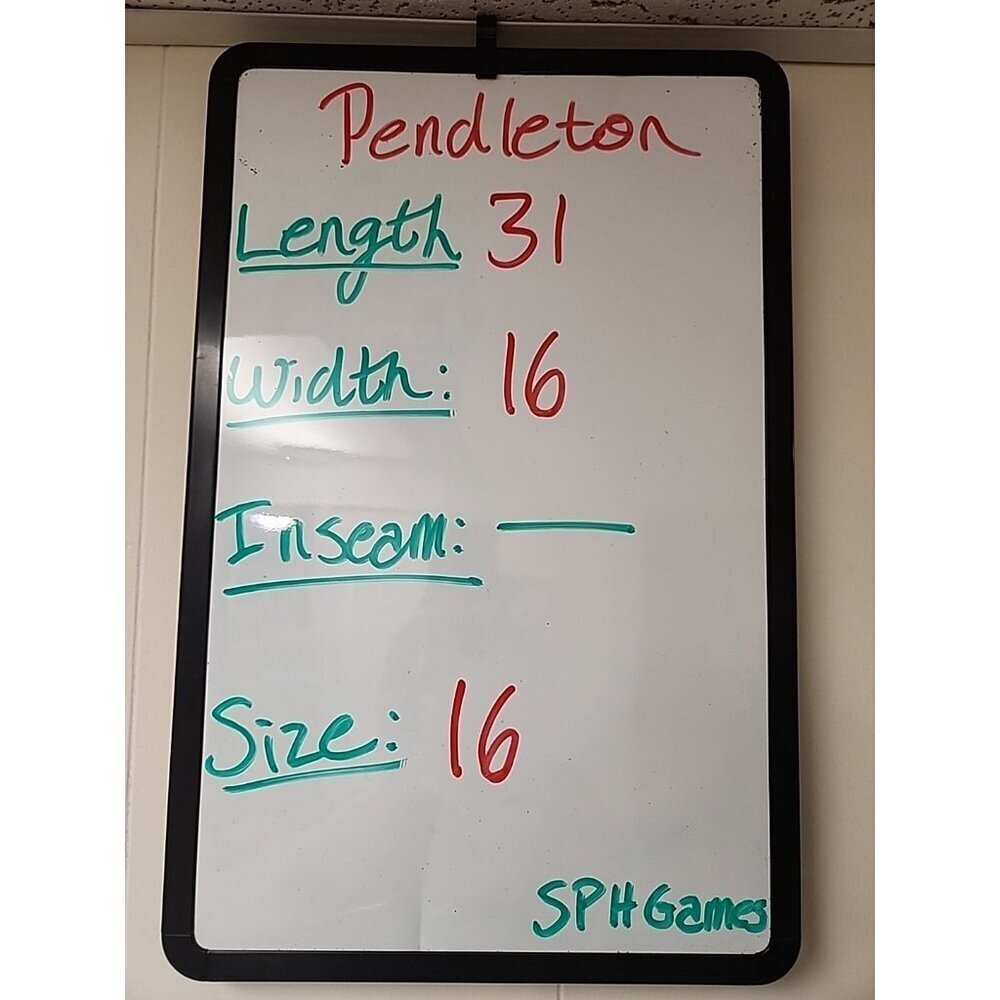 Pendleton
Length 31
Width: 16
Inseam: —
Size: 16
SPHGames